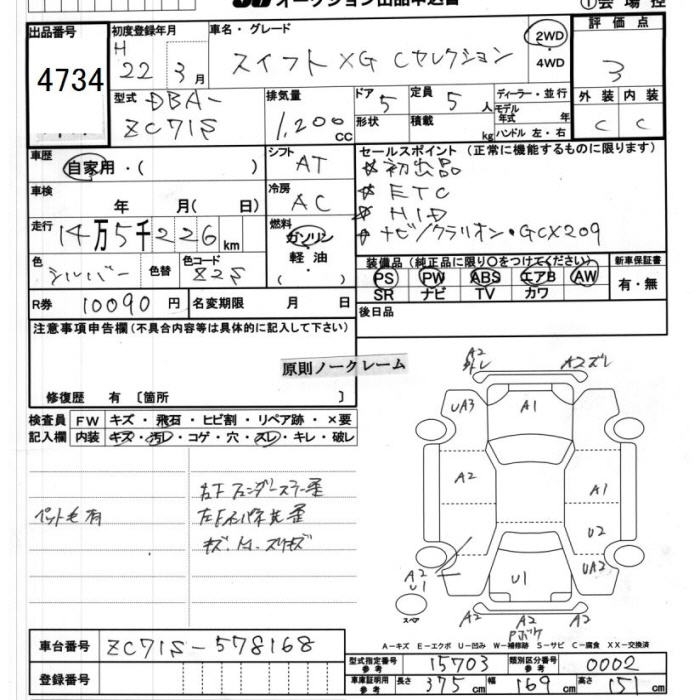 オークション出品申込書
①会場控
出品番号 4734
初度登録年月 H 22年 3月
車名・グレード スイフト XG Cセレクション
2WD・4WD
評価点 3
型式 DBA-ZC71S
排気量 1,200cc
ドア 5 形状
定員 5人 積載 kg
ディーラー・並行
モデル年式 年
ハンドル 左・右
外装 C 内装 C
車歴 自家用・( )
シフト AT
車検 年 月( 日)
冷房 AC
走行 14万5千226km
燃料 ガソリン・軽油・
色 シルバー 色替 色コード Z2S
R券 10090円 名変期限 月 日
セールスポイント (正常に機能するものに限ります)
☆初出品
☆ETC
☆HID
☆ナビ/クラリオン・GCX209
装備品 (純正品に限り○をつけてください) 新車保証書
PS PW ABS エアB AW 有・無
SR ナビ TV カワ
後日品
注意事項申告欄(不具合内容等は具体的に記入して下さい)
原則ノークレーム
修復歴 有〔箇所 〕
検査員記入欄 FW キズ・飛石・ヒビ割・リペア跡・×要
内装 キズ・汚レ・コゲ・穴・スレ・キレ・破レ
ペット毛有
キズ.
A2 A2ズレ
UA3 A1
A2 A1
U2
A2 U1 U1 UA2
スペア A2 A2 A2
Pボケ
A-キズ E-エクボ U-凹み W-補修跡 S-サビ C-腐食 XX-交換済
車台番号 ZC71S-578168
型式指定番号 参考 15703 類別区分番号 参考 0002
登録番号
車庫証明用 参考 長さ 375cm 幅 169cm 高さ 151cm